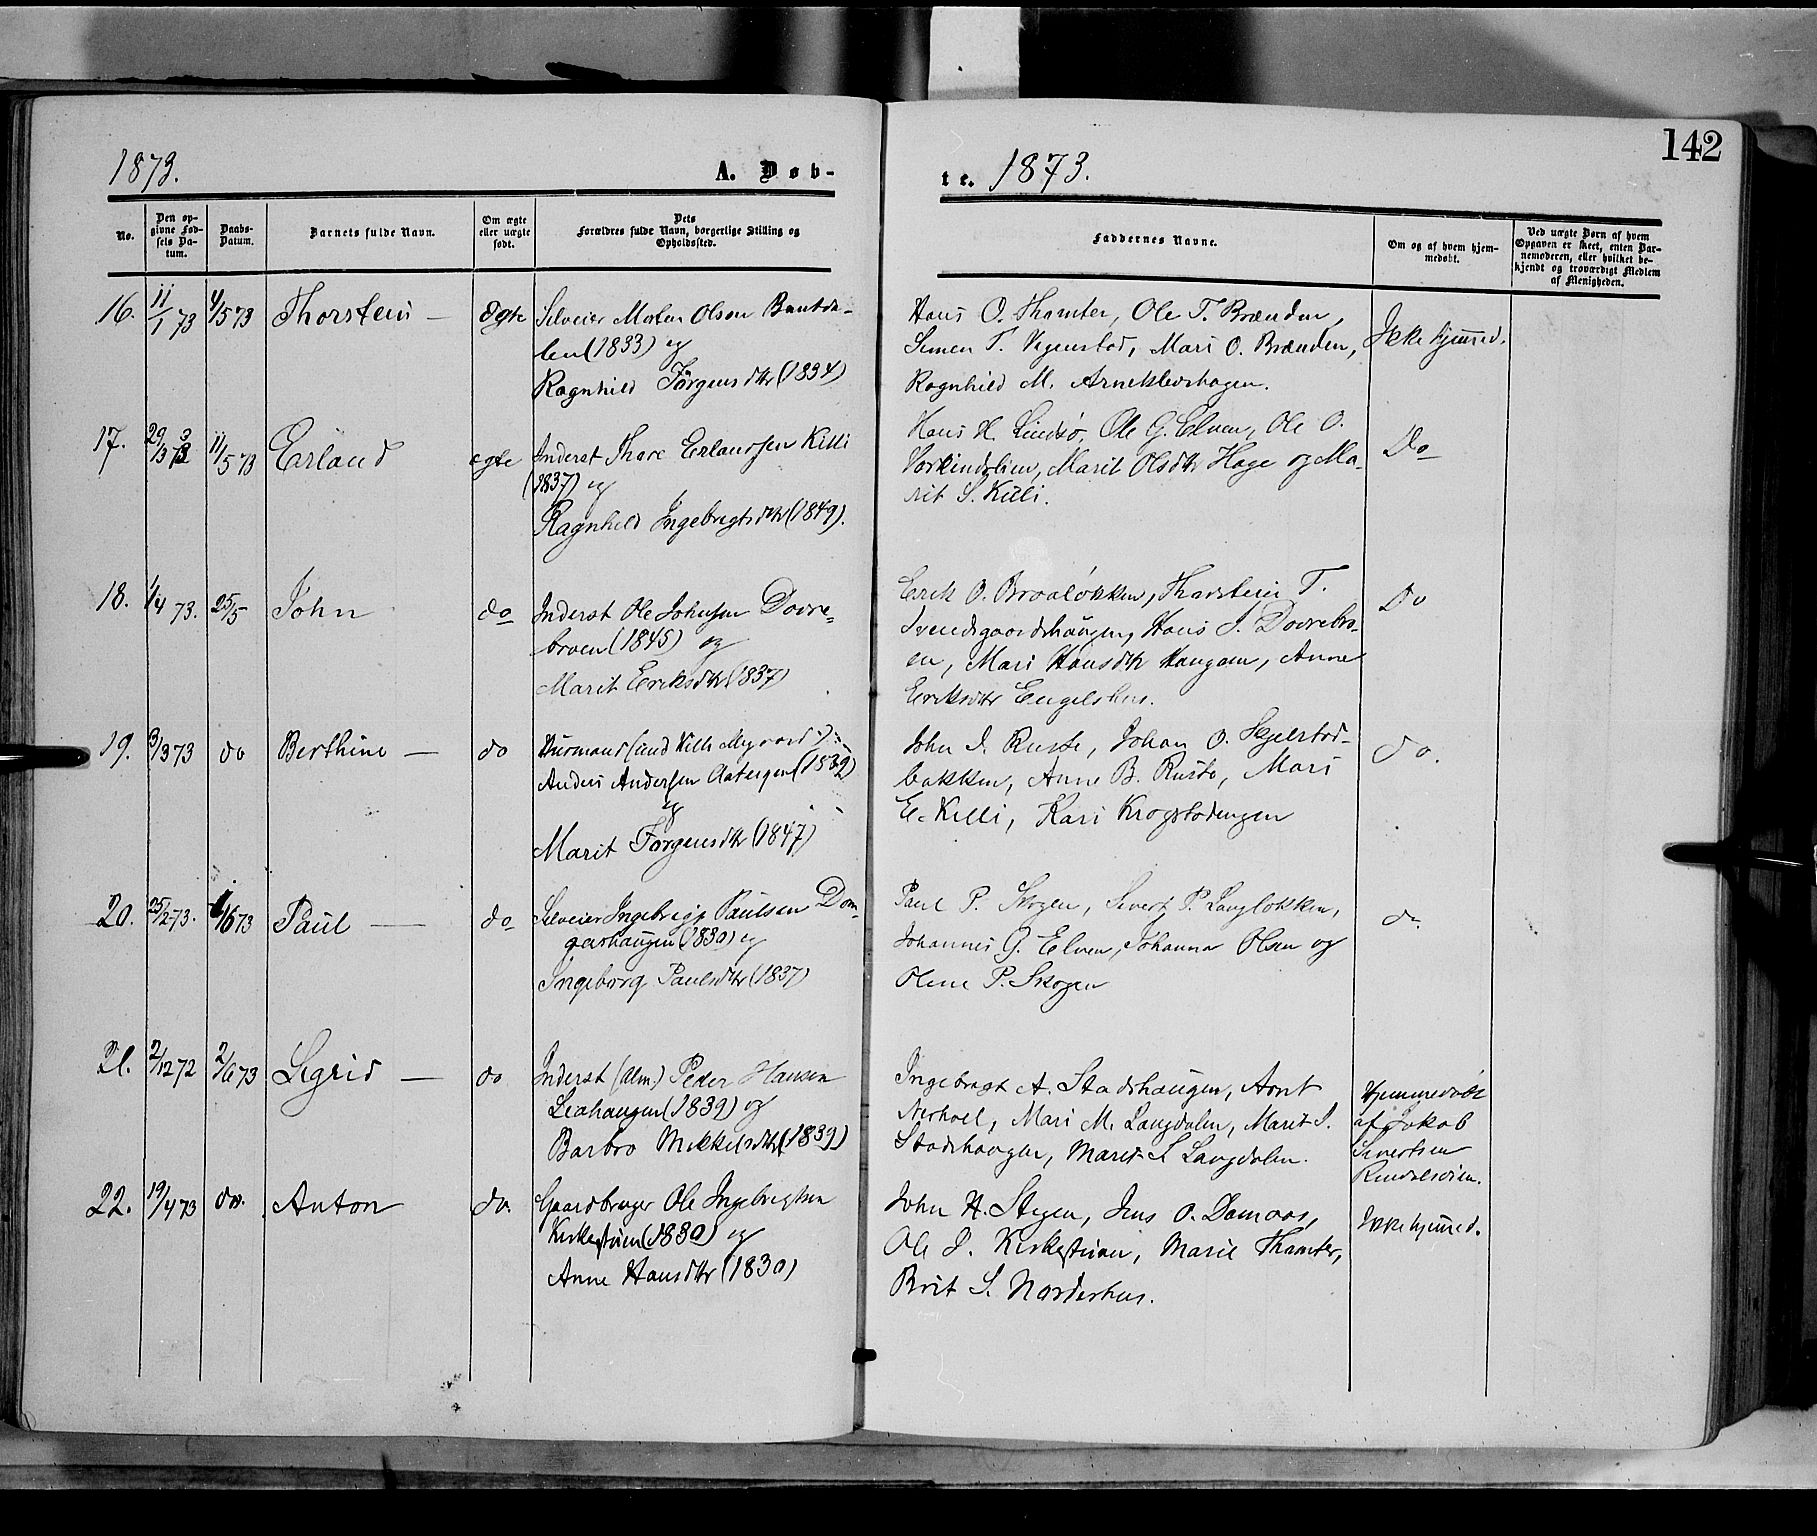 1873.
A. Døb-
te. 1873.
142
No.
Den op-
givne Fød-
sels Da-
tum.
Daabs-
Datum.
Barnets fulde Navn.
Om ægte
eller uægte
født.
Dets
Forældres fulde Navn, borgerlige Stilling og
Opholdssted.
Faddernes Navne.
Om og af hvem hjem-
medøbt.
Ved uægte Børn af hvem
Opgaven er skeet, enten Bar-
nemoderen, eller hvilket be-
kjendt og troværdigt Medlem
af Menigheden.
16. 11/1 73 4/5 73 Thorstein — ægte
Selveier Morten Olsen
len (1833) og
Ragnhild Jørgensdtr (1834)
Hans O. Thamter, Ole T. Brænden,
Simen T. Vegenstad, Mari O. Brænden,
Ragnhild M. Arneklevhagen.
Ikke hjemmed.
17. 29/3 73 11/5 73 Erland ægte
Inderst Thore Erlandsen Killi
(1837) og
Ragnhild Ingebrigtsdtr (1849).
Hans H. Lindsø, Ole G. Elven, Ole O.
Vorkindslien, Marit Olsdtr Hage og Ma-
rit S. Killi.
Do
18. 1/4 73. 25/5 John do
Inderst Ole Johnsen Dovre-
broen (1845) og
Marit Eriksdtr (1837)
Erik O. Broaløkken, Thorstein T.
Svendsgaardshaugen, Hans J. Dovrebro-
en, Mari Hansdtr Haugen, Anne
Eriksdtr Engelshus.
Do
19. 3/3 73 do Berthine — do
Huusmand (und Killi Myrard)
Anders Andersen (1839)
og
Marit Jørgensdtr (1847)
John J. Ruste, Johan O. Skjelstad-
bakken, Anne B. Rusto, Mari
E. Killi, Kari Krogstadengen
do.
20. 25/2 73. 1/6 73 Paul — do
Selveier Ingebrigt Paulsen Dom-
aashaugen (1830) og
Ingeborg Paulsdtr (1837)
Paul P. Skogen, Sivert P. Langløkken,
Johannes G. Elven, Johanna Olsen og
Oline P. Skogen
do
21. 2/12 72 2/6 73 Sigrid — do
Inderst (alm.) Peder Hansen
Liahaugen (1839) og
Barbro Mikkelsdtr (1839)
Ingebrigt A. Stadshaugen, Arnt
Nerhoel, Mari M. Langdalen, Marit I.
Stadshaugen, Marit S Langdalen.
Hjemmedøbt
af Jakob
Sivertsen
22. 19/4 73 do. Anton do.
Gaardbruger Ole Ingebrigtsen
Kirkestuen (1830) og
Anne Hansdtr (1830)
John H. Stegen, Jens O. Domaas,
Ole J. Kirkestuen, Marie Thamter,
Brit S. Norderhus.
Ikke hjemmed.